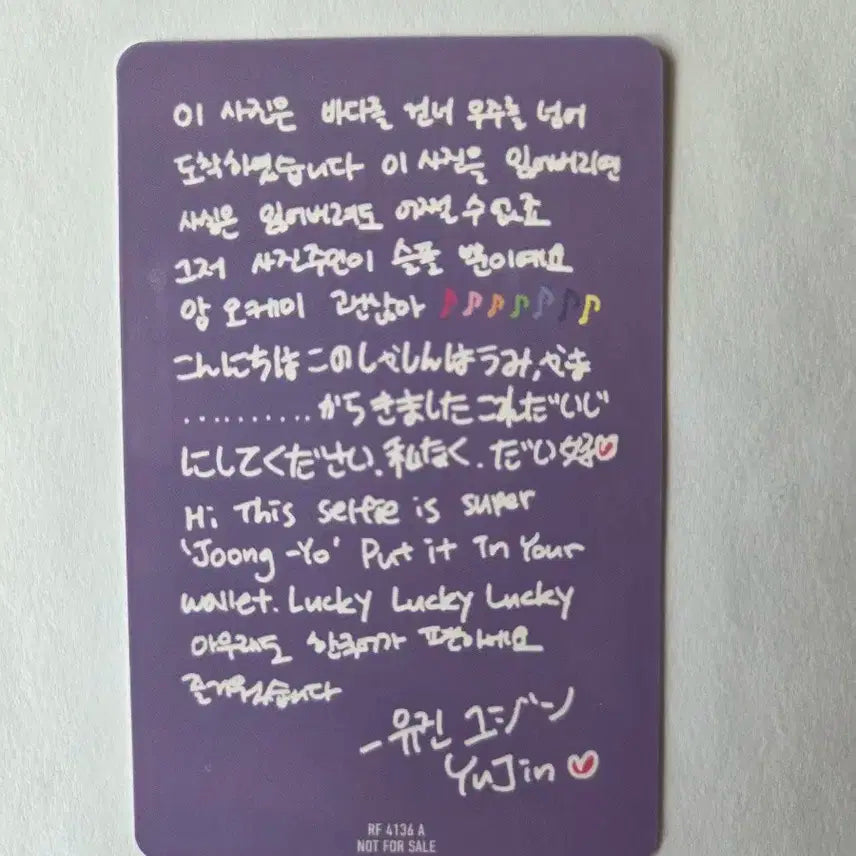 이 사진은 바다를 건너 우주를 넘어
도착하였습니다 이 사진을 잃어버리면
사실은 잃어버려도 어쩔 수 없죠
그저 사진주인이 슬플 뿐이에요
앙 오케이 괜찮아
こんにちは このしゃしんはうみ,やま
..........からきました これだいじ
にしてください. 私なく. だい好
Hi This selfie is super
'Joong-Yo' Put it In Your
wallet. Lucky Lucky Lucky
아무래도 한국어가 편하네요
즐거웠습니다
- 유진 ユジン
YuJin
RF 4136 A
NOT FOR SALE